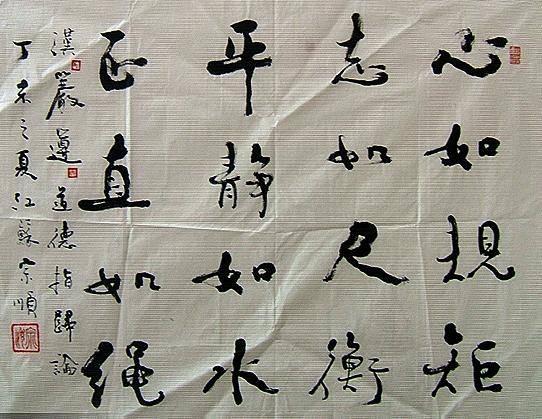 心如規矩
志如尺衡
平静如水
正直如绳
漢嚴遵道德指歸論
丁未之夏江蘇宗順